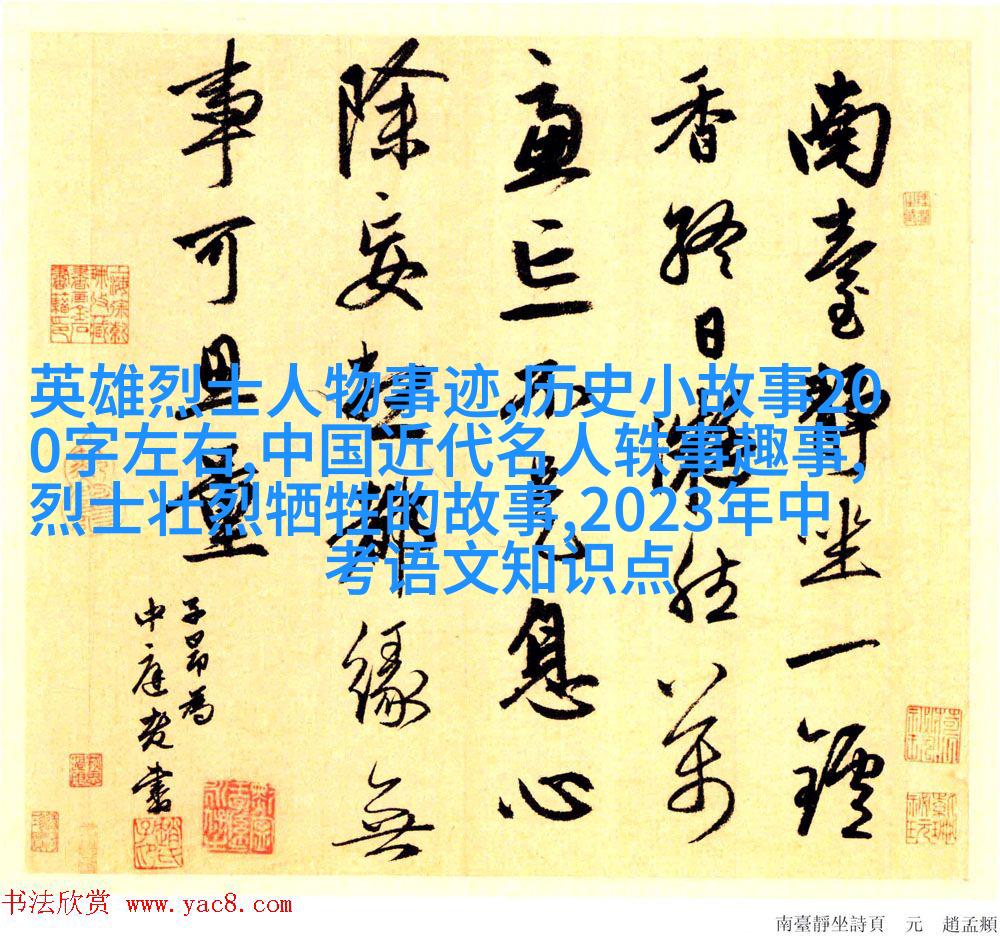 南臺靜坐一鑪
香終日凝然萬
慮亡不是息心
除妄想都緣無
事可思量
子昂為
中庭老書
英雄烈士人物事迹,历史小故事20
0字左右,中国近代名人轶事趣事,
烈士壮烈牺牲的故事,2023年中
考语文知识点
书法欣赏 www.yac8.com
南臺靜坐詩頁 元 趙孟頫